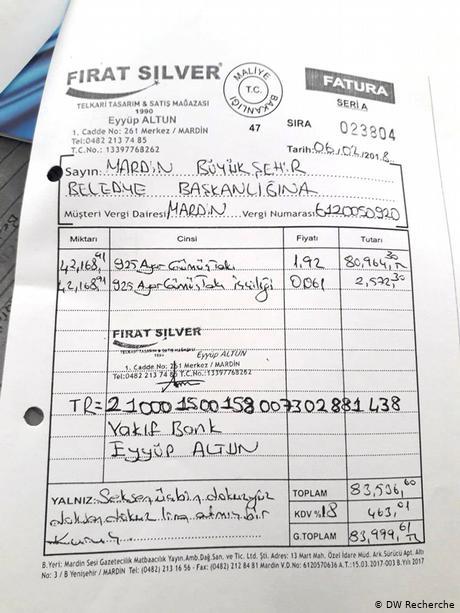 FIRAT SILVER
TELKARİ TASARIM & SATIŞ MAĞAZASI
1990
Eyyüp ALTUN
1. Cadde No: 261 Merkez / MARDİN
Tel:0482 213 74 85
T.C.No.: 13397768262
MALİYE
T.C.
BAKANLIĞI
47
FATURA
SERİ A
SIRA 023804
Tarih:06/02/2018
Sayın: MARDİN BÜYÜKŞEHİR
BELEDİYE BAŞKANLIĞINA
Müşteri Vergi Dairesi MARDİN Vergi Numarası 6120050920
Miktarı Cinsi Fiyatı Tutarı
42,168,91 925 Ayar Gümüş Takı 1,92 80,964,30 TL
42,168,91 925 Ayar Gümüş Takı işçiliği 0,061 2,572,30
FIRAT SILVER
TELKARİ TASARIM & SATIŞ MAĞAZASI
1990 Eyyüp ALTUN
1. Cadde No: 261 Merkez / MARDİN
Tel:0482 213 74 85 T.C.No.: 13397768262
TR= 21000 1500158007302881438
Vakıf Bank
Eyyüp ALTUN
YALNIZ: Seksenüçbin dokuzyüz
doksan dokuz lira altmış bir
Kuruş
TOPLAM 83,536,60
KDV %18 463,01
G.TOPLAM 83,999,61 TL
B.Yeri: Mardin Sesi Gazetecilik Matbaacılık Yayın.Amb.Dağ.San. ve Tic. Ltd. Şti. Adres: 13 Mart Mah. Özel İdare Müd. Ark Sürücü Apt. Altı
No: 3 / B Yenişehir / MARDİN Tel: (0482) 213 16 56 - Fax: (0482) 212 84 81 Mardin V.D. No: 6120570636 A.T.: 15.03.2017-003 B.Yılı 2017
© DW Recherche